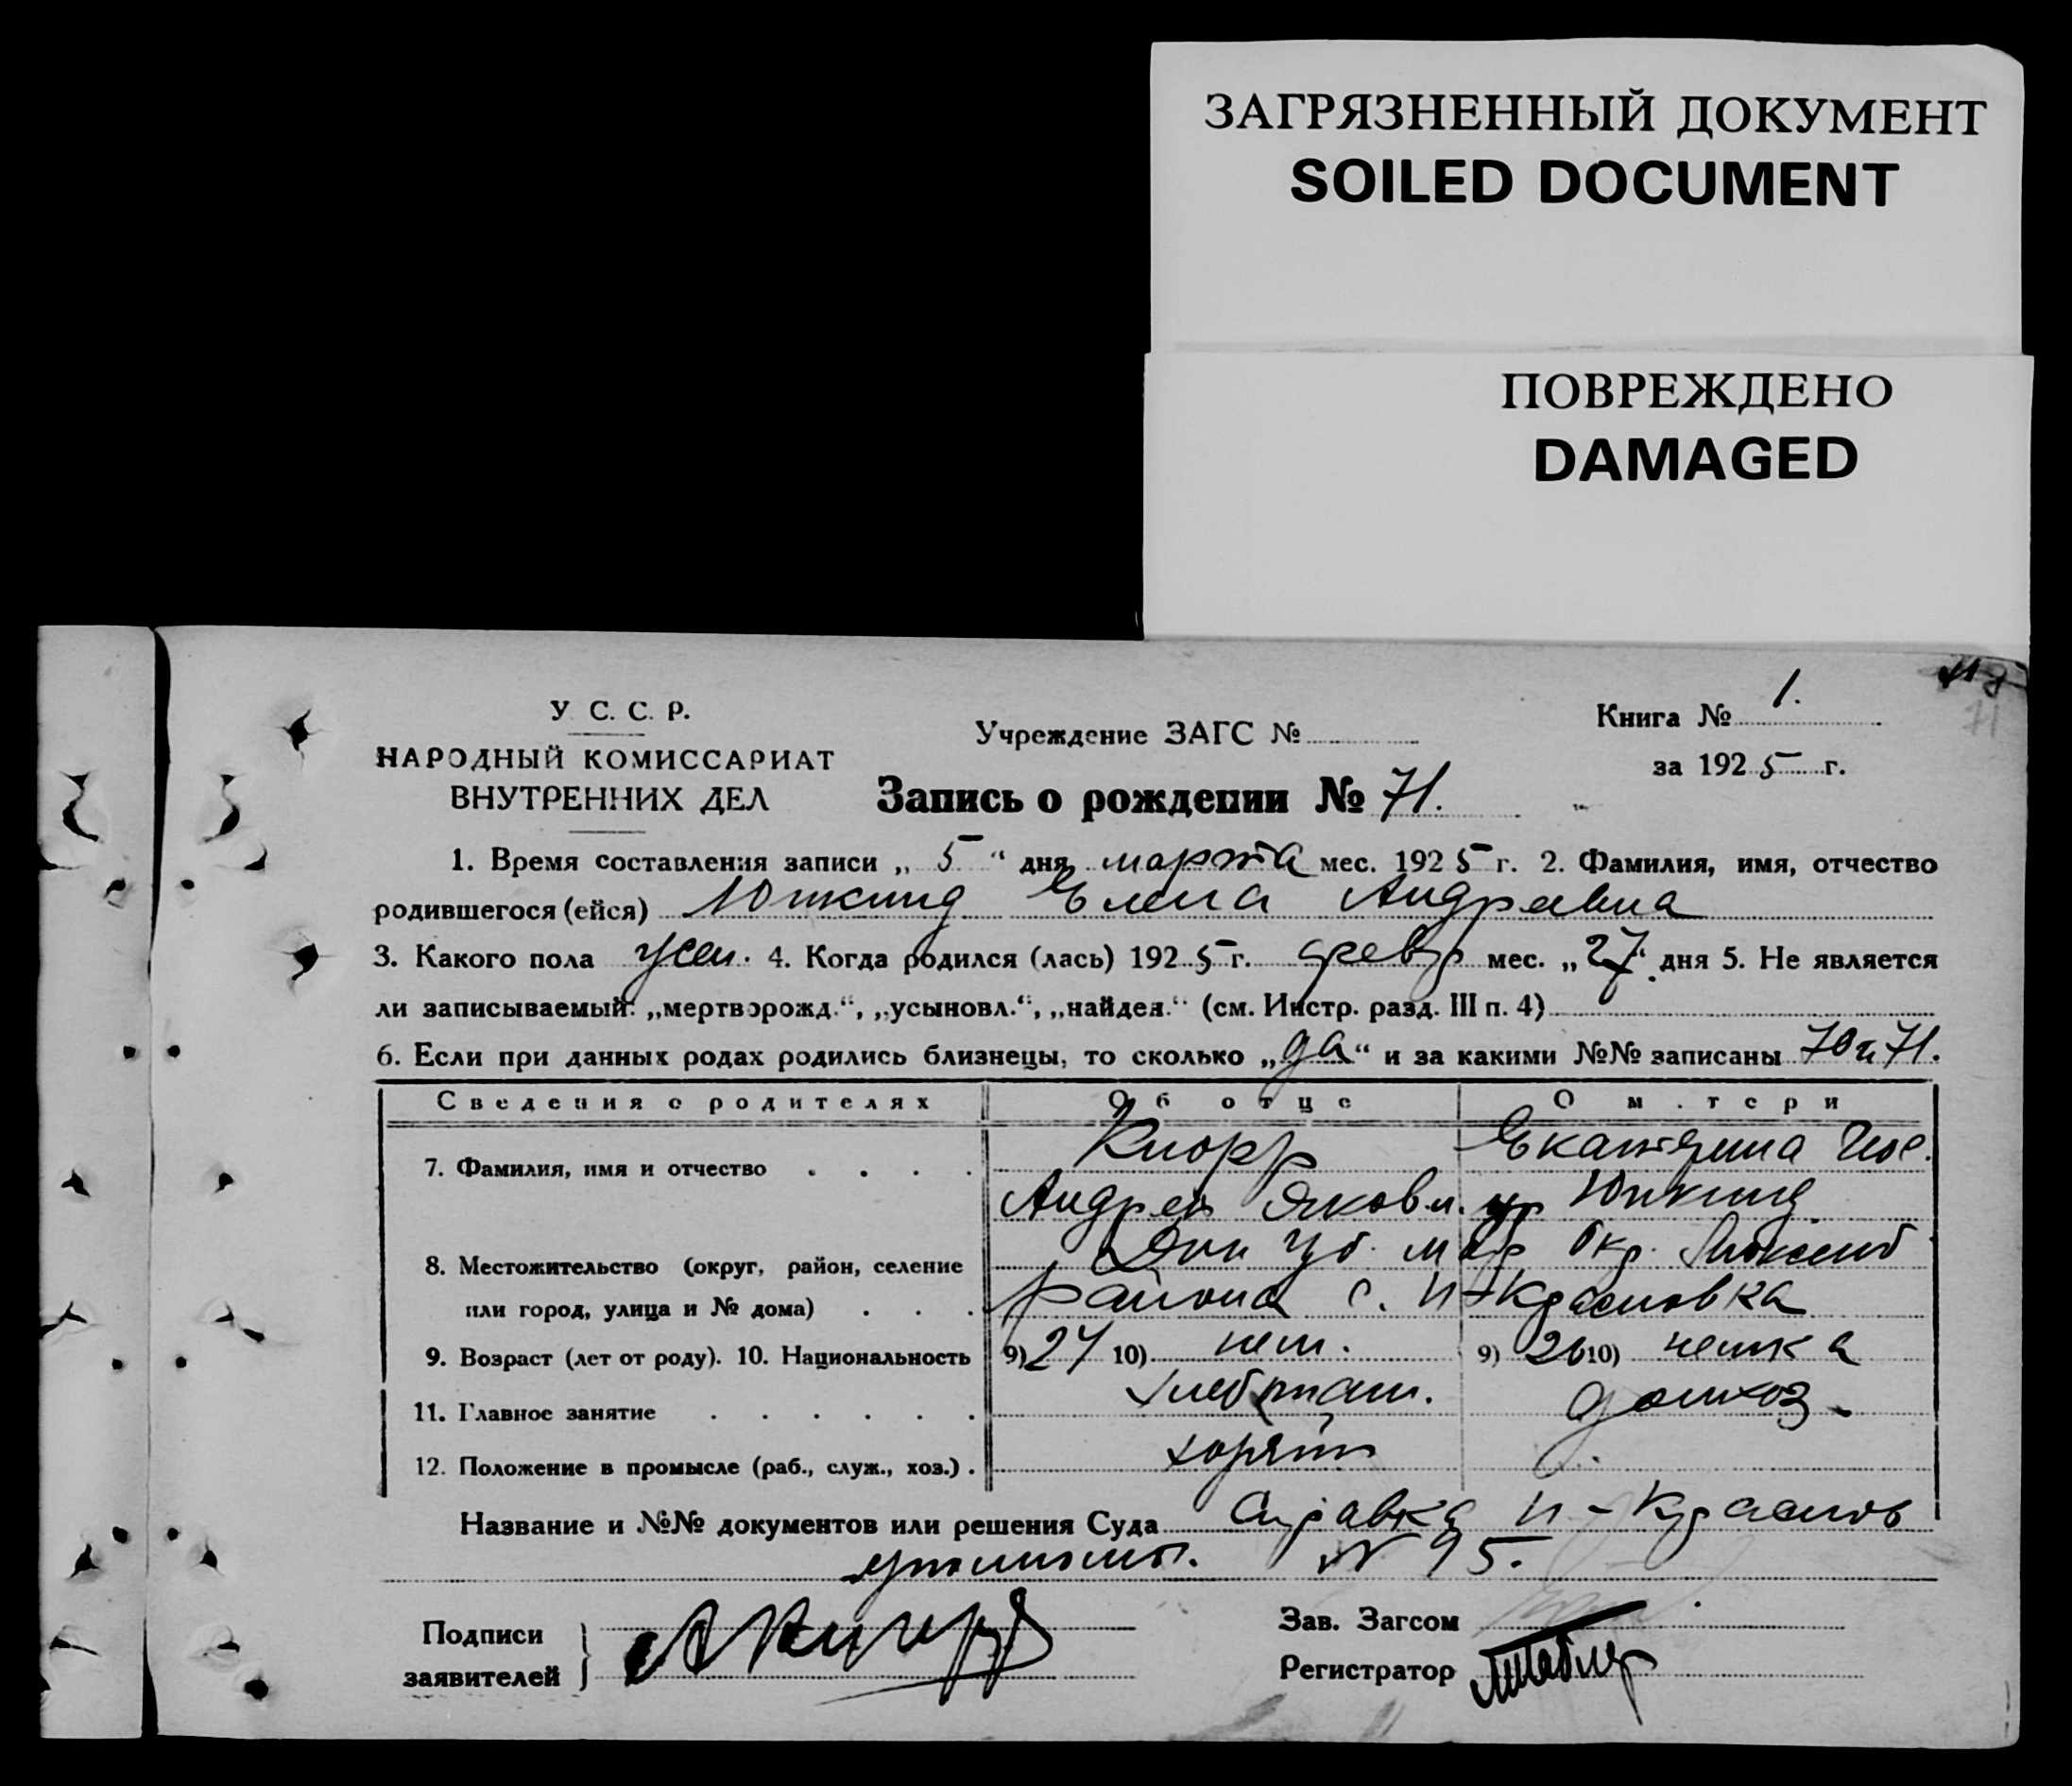 ЗАГРЯЗНЕННЫЙ ДОКУМЕНТ
SOILED DOCUMENT
ПОВРЕЖДЕНО
DAMAGED
У. С. С. Р.
НАРОДНЫЙ КОМИССАРИАТ
ВНУТРЕННИХ ДЕЛ
Учреждение ЗАГС №
Книга № 1.
за 1925 г.
Запись о рождении № 71.
1. Время составления записи „ 5 “ дня марта мес. 1925 г. 2. Фамилия, имя, отчество
родившегося (ейся) Юнкинд Елена Андревна
3. Какого пола жен. 4. Когда родился (лась) 1925 г. февр мес. „27“ дня 5. Не является
ли записываемый: „мертворожд.“, „усыновл.“, „найден.“ (см. Инстр. разд. III п. 4)
6. Если при данных родах родились близнецы, то сколько „да“ и за какими №№ записаны 70 и 71.
Сведения о родителях Об отце О матери
7. Фамилия, имя и отчество Кнорр Екатерина Иос.
Андрей Яковл. гр Юнкинд
8. Местожительство (округ, район, селение Дон Губ. Мар Окр.
или город, улица и № дома) района с. Н-Красновка
9. Возраст (лет от роду). 10. Национальность 9) 27 10) нем. 9) 26 10) немка
11. Главное занятие хлебпаш. домхоз.
12. Положение в промысле (раб., служ., хоз.)
Название и №№ документов или решения Суда Справка Н-Краснов
№ 95.
Подписи
заявителей
А Кнорр
Зав. Загсом
Регистратор